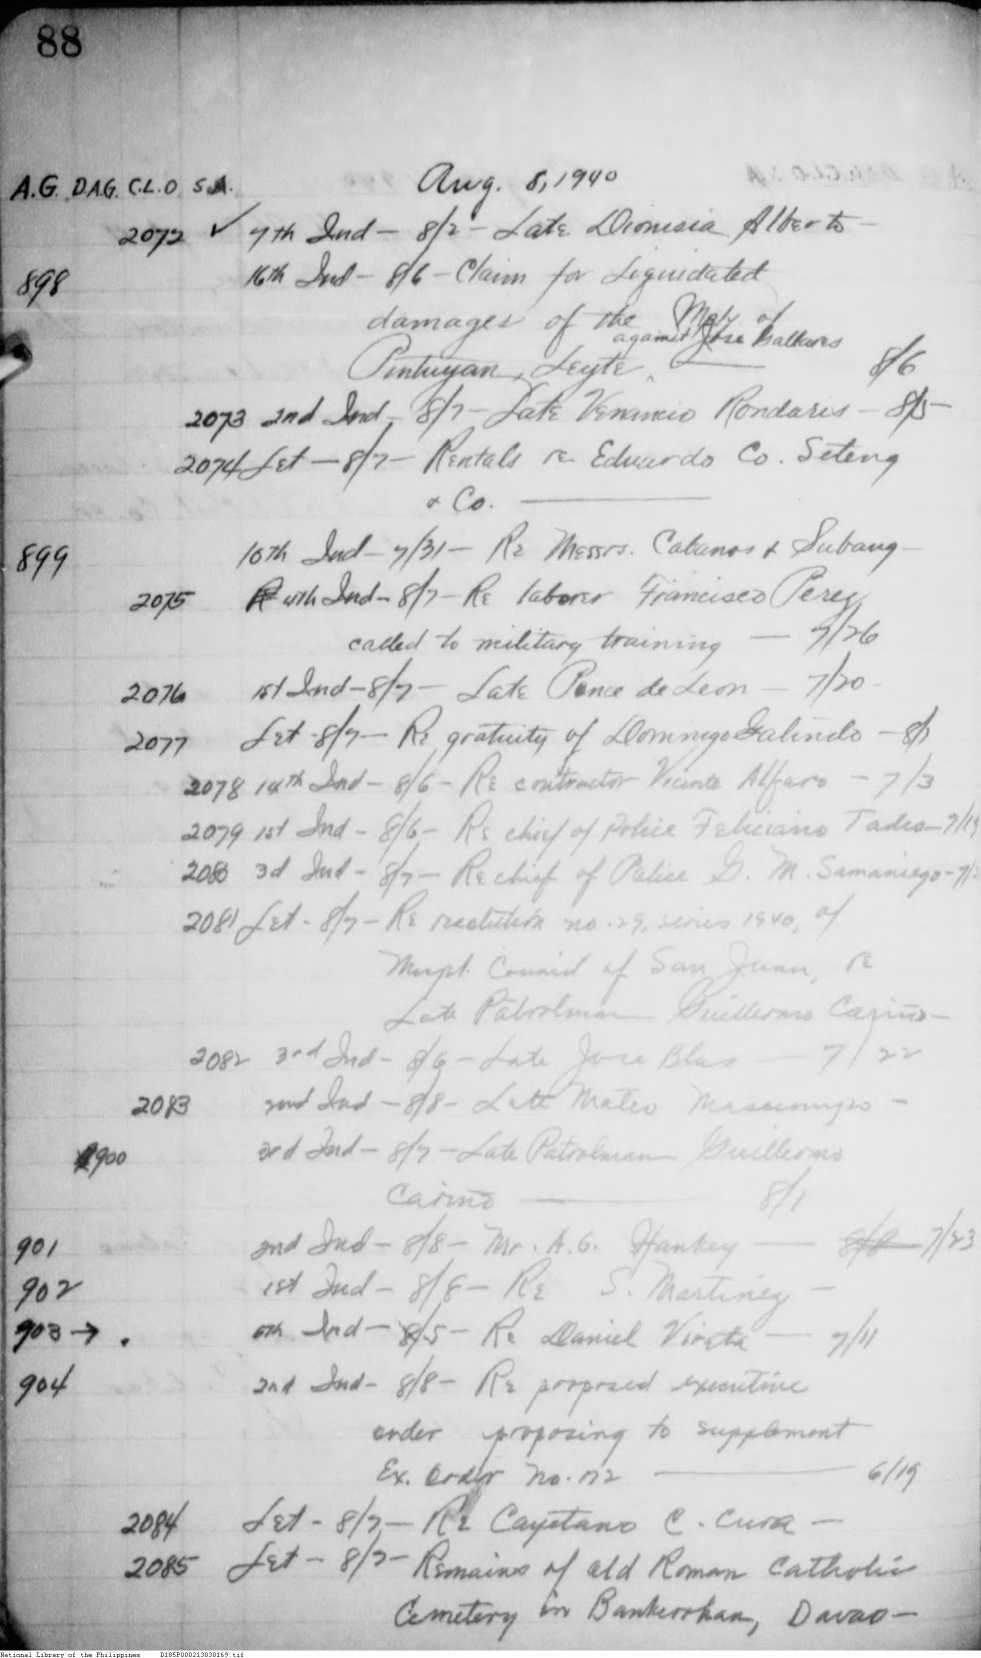 88
A.G. D.A.G. C.L.O. S.A. Aug. 8, 1940
2072 ✓ 7th Ind - 8/2 - Late Dionisia Alberto -
898 16th Ind - 8/6 - Claim for Liquidated
damages of the Mply of
against Jose Balleares
Pintuyan, Leyte, — 8/6
2073 2nd Ind - 8/7 - Late Venancio Rondaris - 8/5 -
2074 Let - 8/7 - Rentals re Eduardo Co. Seteng
& Co. —
899 10th Ind - 7/31 - Re Messrs. Cabanos & Subang -
2075 4th Ind - 8/7 - Re laborer Francisco Perez
called to military training — 7/26
2076 1st Ind - 8/7 - Late Ponce de Leon - 7/20 -
2077 Let - 8/7 - Re gratuity of Domingo Galindo - 8/1
2078 14th Ind - 8/6 - Re contractor Vicente Alfaro - 7/3
2079 1st Ind - 8/6 - Re chief of Police Feliciano Tadeo - 7/19
2080 3d Ind - 8/7 - Re chief of Police G. M. Samaniego - 7/
2081 Let - 8/7 - Re resolution no. 29, series 1940, of
Mcpl. Council of San Juan, re
Late Patrolman Guillermo Cariño -
2082 3rd Ind - 8/6 - Late Jose Blas — 7/22
2083 2nd Ind - 8/8 - Late Mateo -
900 3rd Ind - 8/7 - Late Patrolman Guillermo
Cariño — 8/1
901 2nd Ind - 8/8 - Mr. A.G. Hankey — 8/8 7/23
902 1st Ind - 8/8 - Re S. Martinez -
903 → . Ind - 8/5 - Re Daniel Virata — 7/11
904 2nd Ind - 8/8 - Re proposed executive
order proposing to supplement
Ex. Order No. 172 — 6/19
2084 Let - 8/7 - Re Cayetano C. Cura -
2085 Let - 8/7 - Remains of old Roman Catholic
Cemetery in Bankerohan, Davao -
National Library of the Philippines D185P000213030169.tif